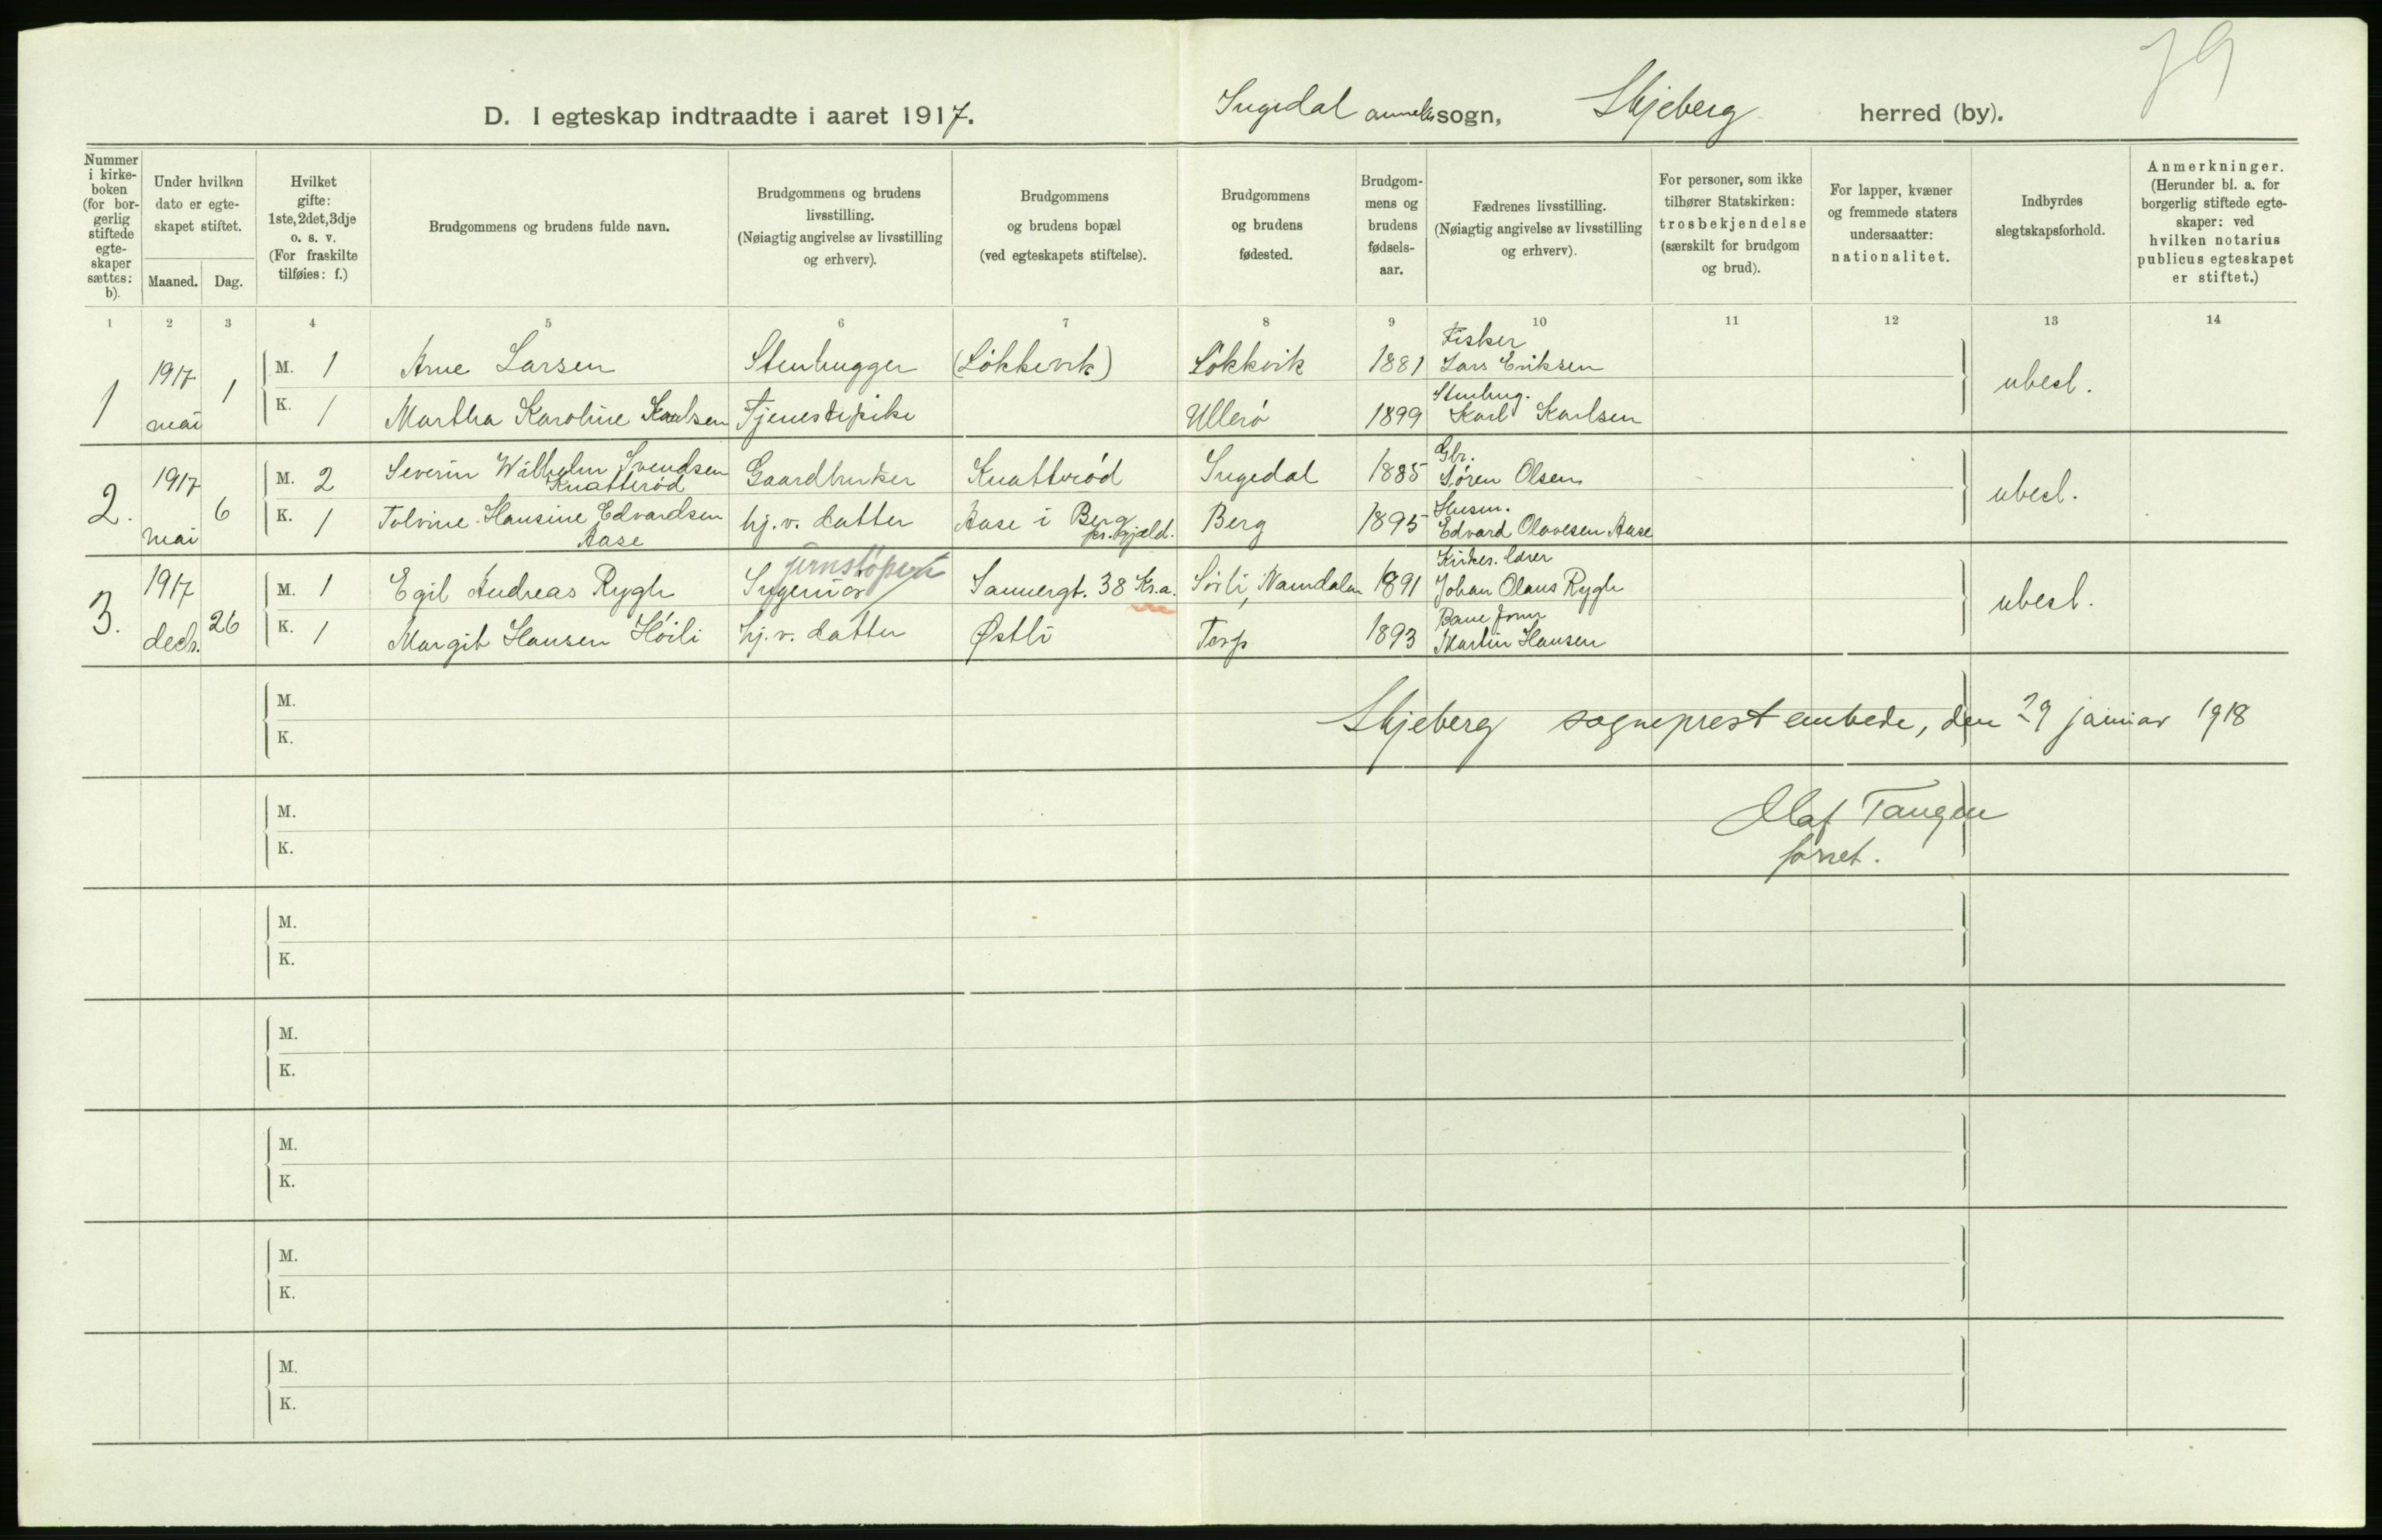 79
D. I egteskap indtraadte i aaret 1917. Ingedal anneks sogn, Skjeberg herred (by).
Nummer i kirkeboken (for borgerlig stiftede egteskaper sættes: b).
Under hvilken dato er egteskapet stiftet.
Maaned. Dag.
Hvilket gifte: 1ste, 2det, 3dje o. s. v. (For fraskilte tilføies: f.)
Brudgommens og brudens fulde navn.
Brudgommens og brudens livsstilling. (Nøiagtig angivelse av livsstilling og erhverv).
Brudgommens og brudens bopæl (ved egteskapets stiftelse).
Brudgommens og brudens fødested.
Brudgommens og brudens fødselsaar.
Fædrenes livsstilling. (Nøiagtig angivelse av livsstilling og erhverv).
For personer, som ikke tilhører Statskirken: trosbekjendelse (særskilt for brudgom og brud).
For lapper, kvæner og fremmede staters undersaatter: nationalitet.
Indbyrdes slegtskapsforhold.
Anmerkninger. (Herunder bl. a. for borgerlig stiftede egteskaper: ved hvilken notarius publicus egteskapet er stiftet.)
1 2 3 4 5 6 7 8 9 10 11 12 13 14
1 1917 mai 1
M. 1 Arne Larsen Stenhugger (Løkkevik) Løkkvik 1881 Fisker Lars Eriksen ubesl.
K. 1 Martha Karoline Karlsen Tjenestepike Ullerø 1899 Stenhug. Karl Karlsen
2. 1917 mai 6
M. 2 Severin Wilhelm Svendsen Knatterød Gaardbruker Knatterød Ingedal 1885 Gbr. Søren Olsen ubesl.
K. 1 Tolvine Hansine Edvardsen Aase hj. v. datter Aase i Berg pr.gjeld. Berg 1895 Husm. Edvard Olavesen Aase
3. 1917 decb. 26
M. 1 Egil Andreas Rygh Ingeniør jernstøperi Sannergt. 38 Kr.a. Sørli, Namdalen 1891 Kirkes. lærer Johan Olaus Rygh ubesl.
K. 1 Margit Hansen Høili hj. v. datter Østli Torp 1893 Bane form Martin Hansen
M.
K.
Skjeberg sogneprestembede, den 29 januar 1918
M.
K.
Olaf Tangen
forret.
M.
K.
M.
K.
M.
K.
M.
K.
M.
K.